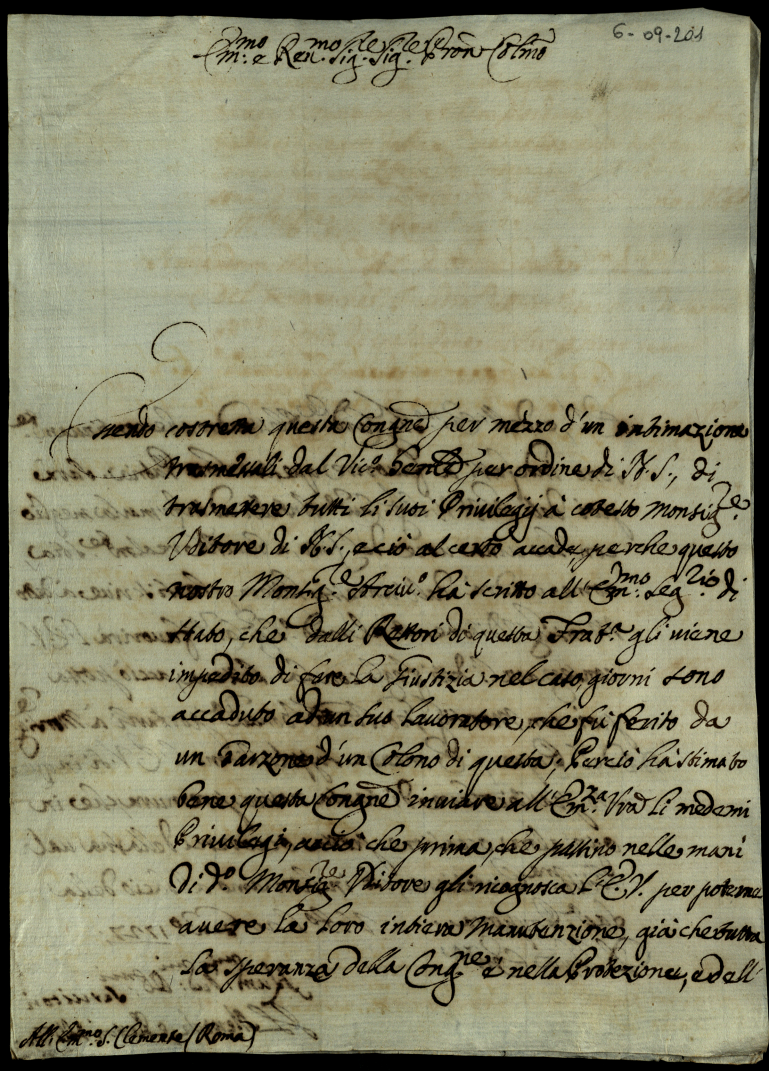 6-09-201
Em:mo e Ren.mo Sig.re Sig.re Pron Colmo
Essendo costretta questa Congne per mezzo d'un intimazione
trasmessali dal Vic.o Genle per ordine di N.S., di
trasmettere tutti li suoi Privilegij à cotesto Monsig.re
Uditore di N.S., e ciò al certo accade, perche questo
nostro Monsig.re Arciv.o hà scritto all'Em:mo Seg.rio di
Stato, che dalli Rettori di questa Frat.a gli viene
impedito di fare la Giustizia nel caso, giorni sono
accaduto ad un suo lavoratore, che fù ferito da
un Garzone d'un Colono di questa; Perciò hà stimato
bene questa Congne inviare all'Em:za Vra li medemi
Privilegi, acciò che prima, che passino nelle mani
di d.o Monsig.re Uditore gli ricognosca l'E.V. per poterne
avere la loro intiera manutenzione, già che tutta
la speranza della Cong.ne è nella Protezione, e dell'
All'Em:mo S. Clemente (Roma)